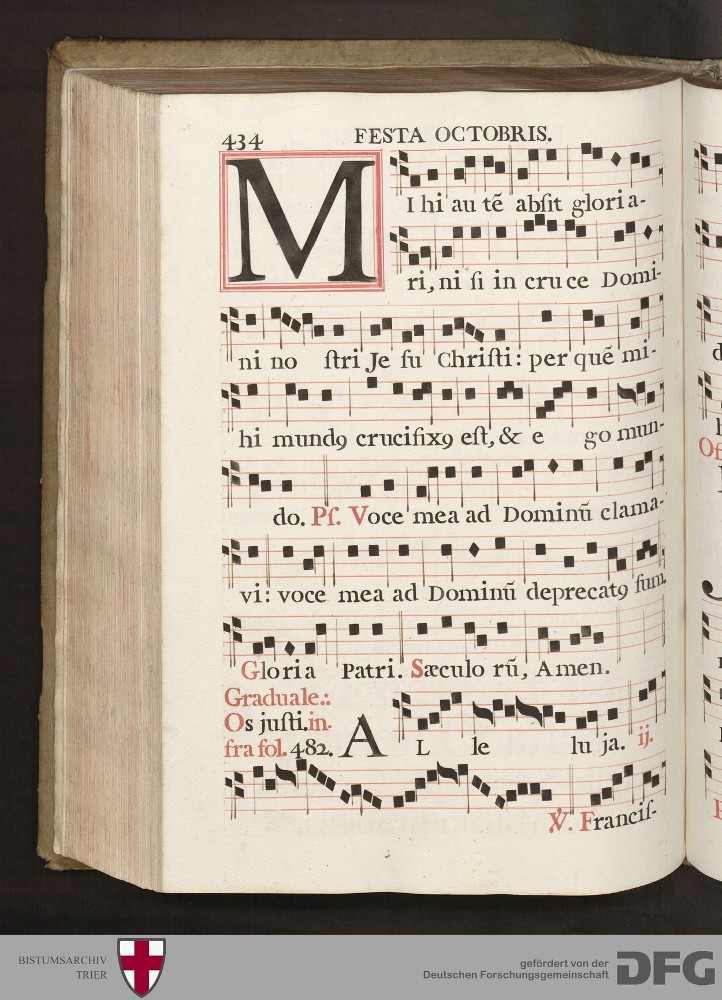 434 FESTA OCTOBRIS.
MIhi au tē abſit gloria-
ri, ni ſi in cruce Domi-
ni no ſtri Je ſu Chriſti: per quē mi-
hi mundꝯ crucifixꝯ eſt, & e go mun-
do. Pſ. Voce mea ad Dominū clama-
vi: voce mea ad Dominū deprecatꝯ ſum.
Gloria Patri. Sæculo rū, Amen.
Graduale.:
Os juſti. in-
fra fol. 482.
AL le lu ja. ij.
℣. Franciſ-
BISTUMSARCHIV
TRIER
gefördert von der
Deutschen Forschungsgemeinschaft
DFG